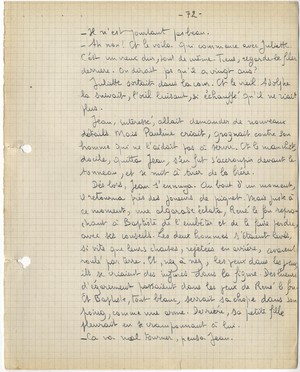 - 72 -
- Il n'est pourtant pas beau.
- Ah non ! Et le voilà qui commence avec Juliette.
C'est un vieux dur, tout de même. Tiens, regarde-le filer
derrière. On dirait pas qu'il a vingt ans ?
Juliette sortait dans la cour. Et le vieil Adolphe
la suivait, l'œil luisant, si échauffé qu'il ne
plus.
Jean, intéressé, allait demander de nouveaux
détails. Mais Pauline criait, grognait contre son
homme qui ne l'aidait pas à servir. Et le manchot,
docile, quitta Jean, s'en fut s'accroupir devant le
tonneau, et se mit à tirer de la bière.
Dès lors, Jean s'ennuya. Au bout d'un moment,
il retourna près des joueurs de piquet. Mais juste à ce
moment, une algarade éclata, René le fou repro-
chant à Baptiste de l'embêter et de le faire perdre
avec ses conseils. Les deux hommes s'étaient levés,
si vite que leurs chaises, rejetées en arrière, avaient
roulé par terre. Et, nez à nez, les yeux dans les yeux,
ils se criaient des injures dans la figure. Des lueurs
d'égarement passaient dans les yeux de René le fou.
Et Baptiste, tout blanc, serrait sa chope dans son
poing, comme une arme. Derrière, sa petite fille
pleurait en se cramponnant à lui.
- Ça va mal tourner, pensa Jean.